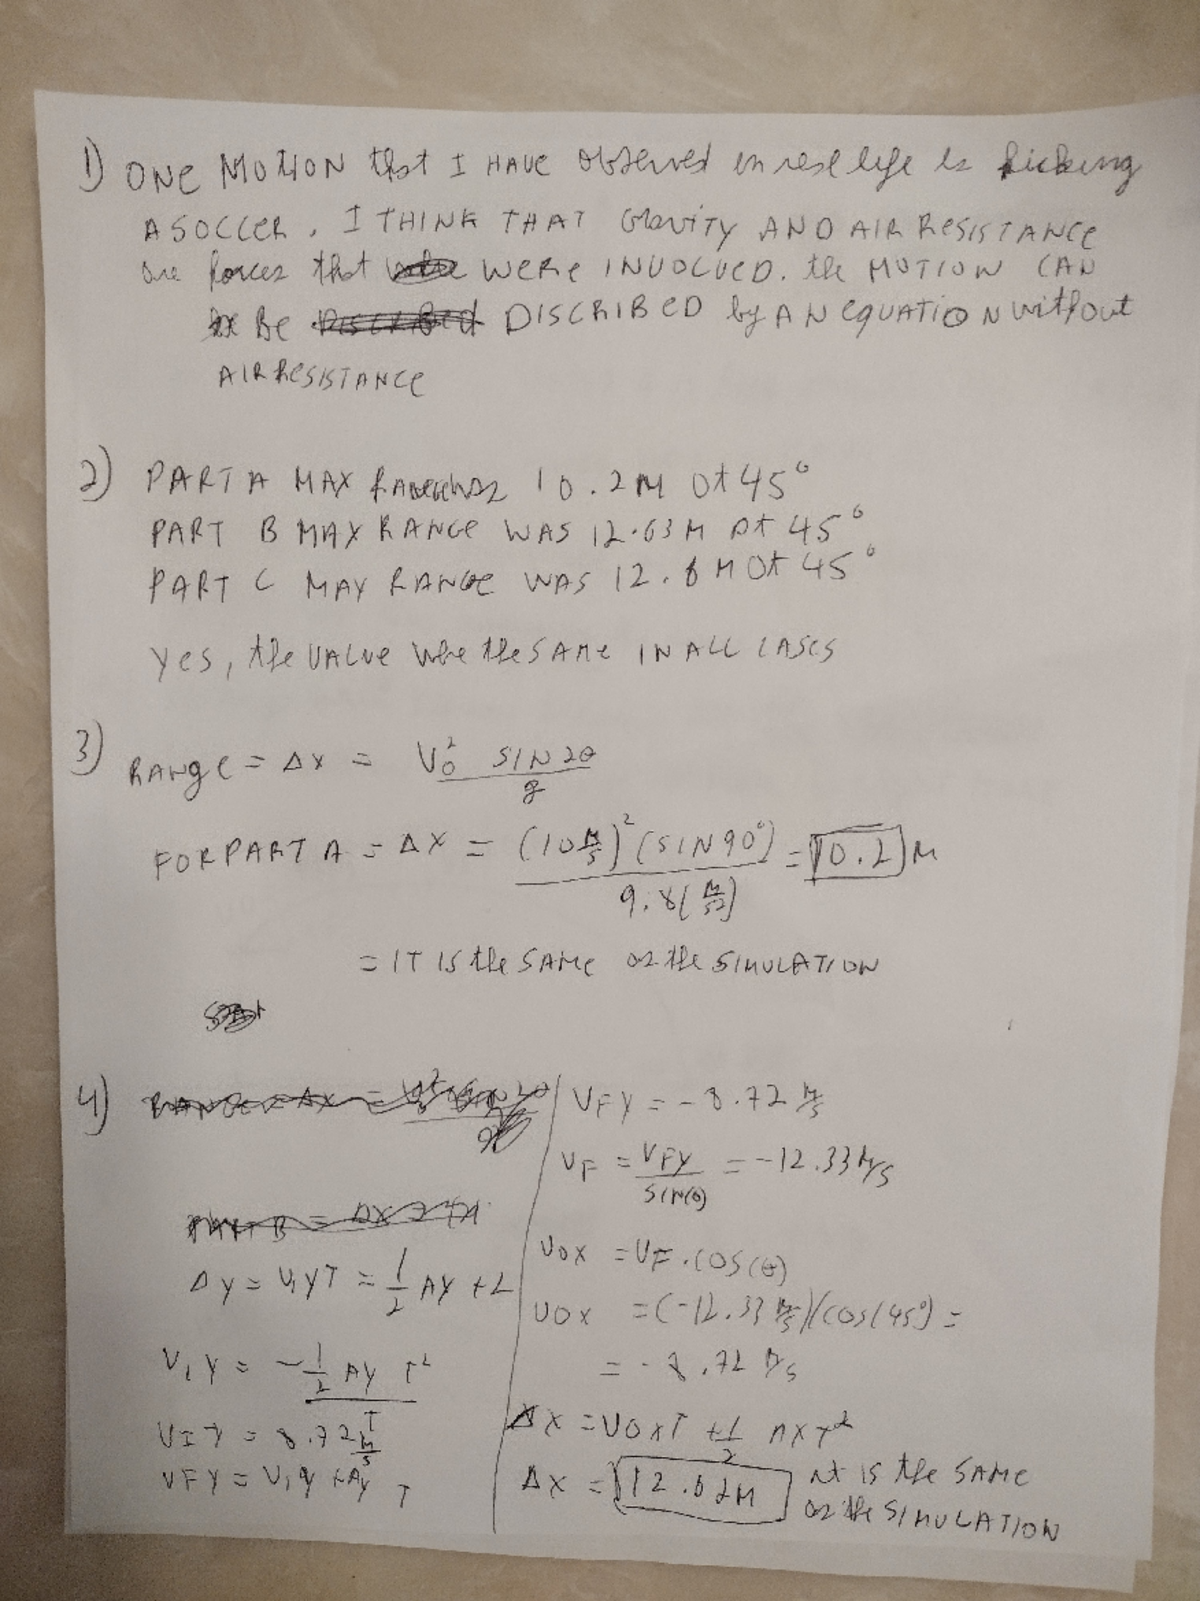 1) ONE MOTION that I HAVE observed in real life is kicking
A SOCCER. I THINK THAT Gravity AND AIR RESISTANCE
are forces that WERE INVOLVED. the MOTION CAN
Be DISCRIBED by AN EQUATION without
AIR RESISTANCE
2) PART A MAX 10.2M at 45°
PART B MAX RANGE WAS 12.63M at 45°
PART C MAX RANGE WAS 12.8 M at 45°
yes, the VALUE the SAME IN ALL CASES
3) RANGE = ΔX = V₀² SIN 2θ / g
FOR PART A = ΔX = (10 M/S)² (SIN 90°) / 9.8 (M/S2) = 10.2 M
= IT IS the SAME as the SIMULATION
4)
Δy = V₁yT = 1/2 Ay t2
V₁y = -1/2 Ay T² / T
VIy = 8.72 M/S
VFy = V₁y + Ay T
VFY = -8.72 M/S
VF = VFY / SIN(θ) = -12.33 M/S
VOX = VF . COS(θ)
VOX = (-12.33 M/S)(COS(45°) =
= -8.72 M/S
ΔX = VOXT + 1/2 AXT²
ΔX = 12.62M it IS the SAME
as the SIMULATION